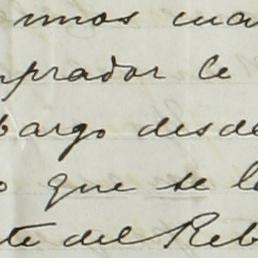 unos cua
prador le
bargo desde
o que se l
te del Reb